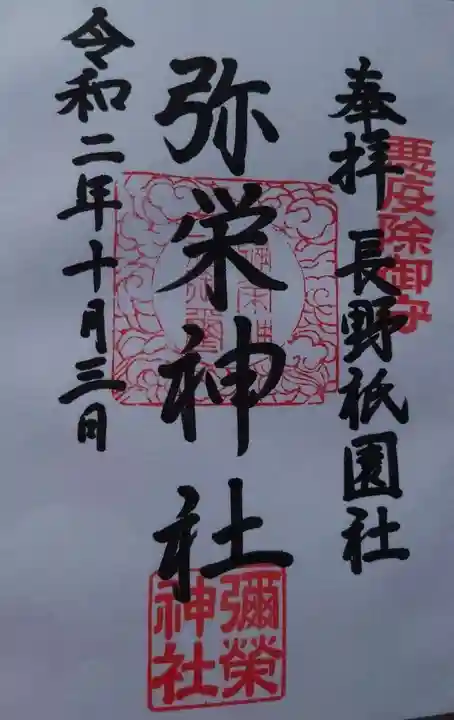 奉拝 長野祇園社
悪疫除御守
弥栄神社
彌榮
神社
令和二年十月三日